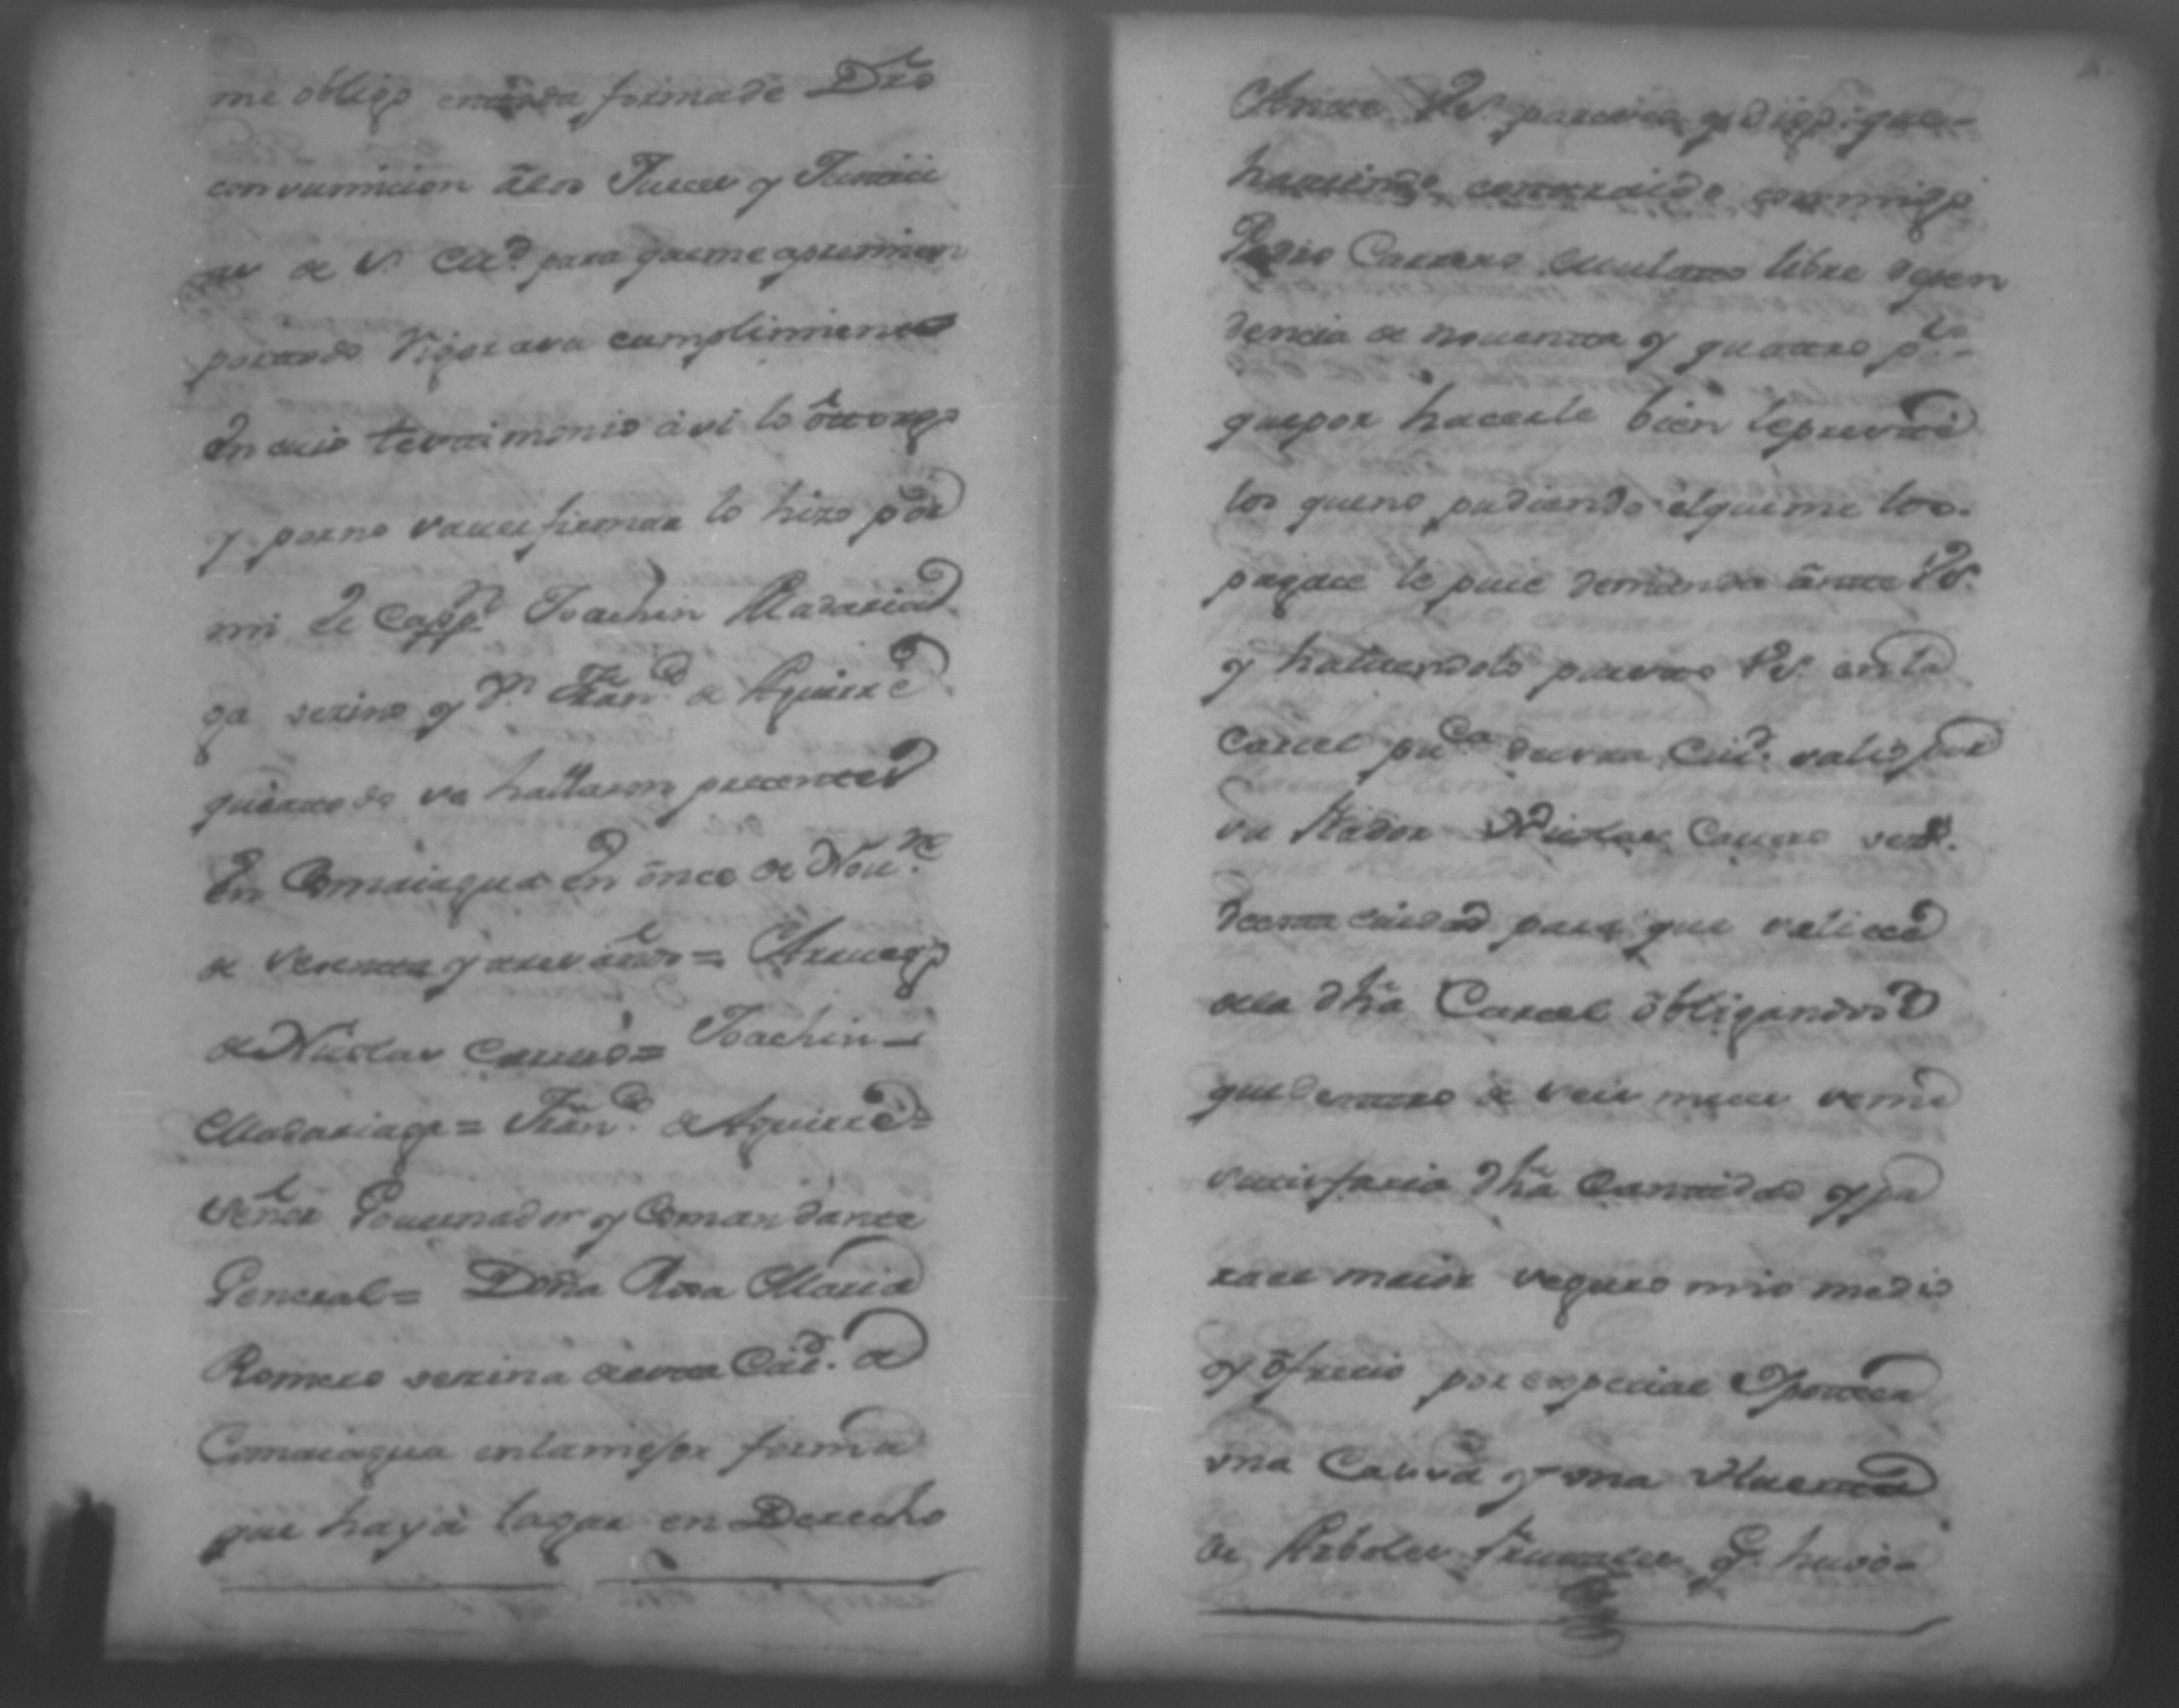 me obligo en toda forma de Dro
con sumicion â los Jueces y Justici
as de S. Mâd. para que me apremien
por todo Rigor a su cumplimiento
En cuio testimonio asi lo ôtorgo
y por no saver firmar lo hizo por
mi el Cappn. Joachin Madaria
ga vezino y Dn. Franco. de Aguirre
quienes se hallaron precentes
En Comaiagua En ônce de Nove.
de setenta y tres años = A ruego
de Nicolas Cauero = Joachin
Madariaga = Franco. de Aguirre =
Señor Gouernador y Comandante
General = Doña Rosa Maria
Romero vezina de esta Ciud. de
Comaiagua en la mejor forma
que haya lugar en Derecho
Ante Vs. paresco y digo: que
haviendo contraido conmigo
Pedro Carrero Mulato libre depen
dencia de nouenta y quatro ps.
que por hacerle bien le presté
los que no pudiendo el que me los
pagace le puse demanda ânte Vs.
y hauiendolo puesto Vs. en la
Carcel puca. de esta Ciud. salio por
su fiador Nicolas Cauero vezo.
de esta ciudad para que saliece
de la dha Carcel ôbligandose
que dentro de seis meses se me
sacisfaria dha Cantidad y pa
ra el maior seguro mio medio
y ôfrecio por expecial Ypoteca
vna Cassa y vna Huerta
de Arboles frutales q. huvo